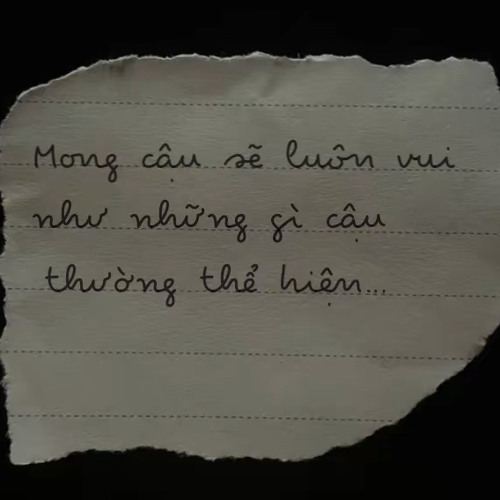 Mong cậu sẽ luôn vui
như những gì cậu
thường thể hiện...